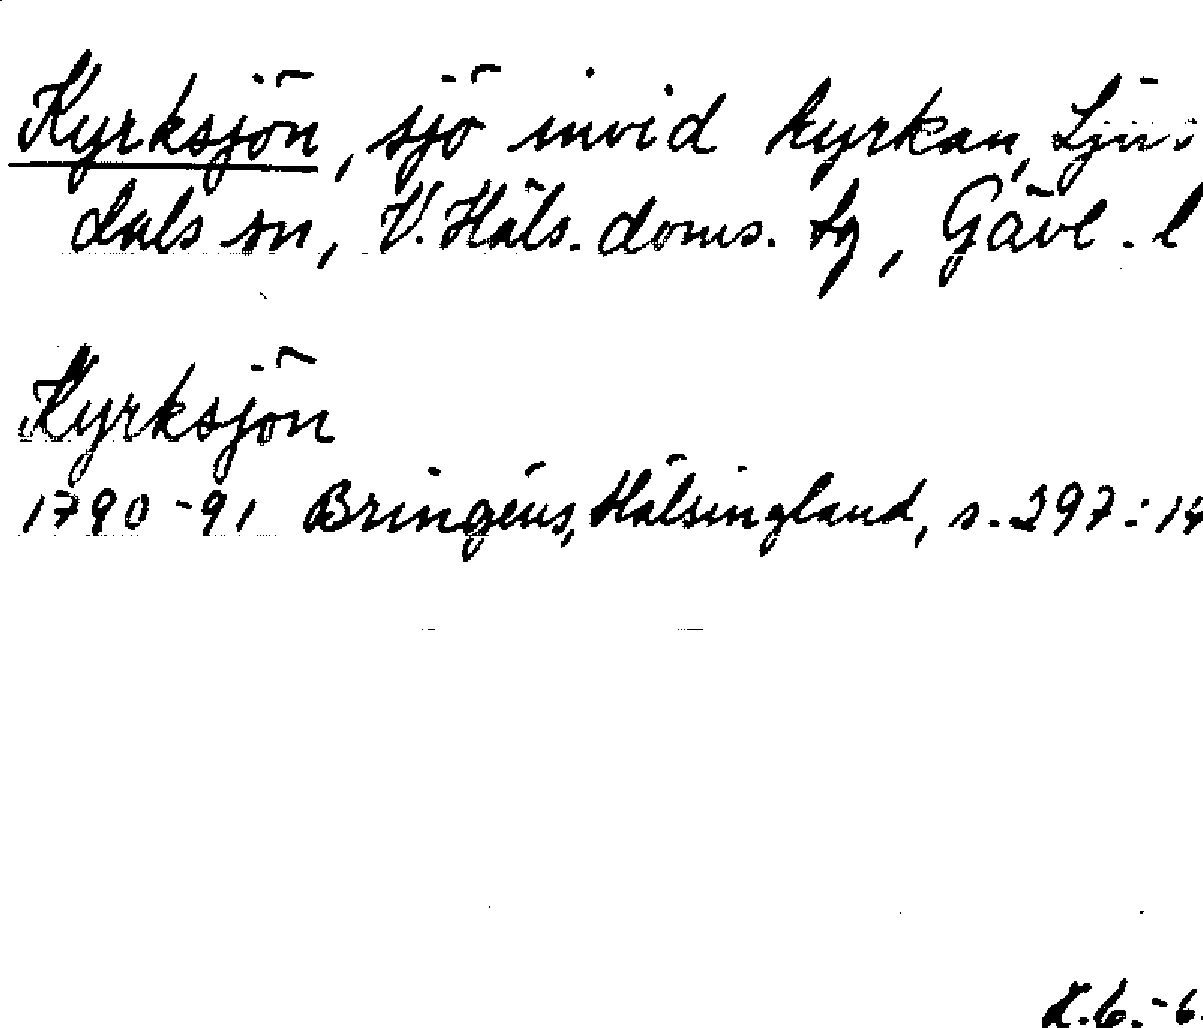 Kyrksjön, sjö invid kyrkan, Ljus
dals sn, V. Häls. doms. tg, Gävl. l
Kyrksjön
1790-91 Bringéus, Hälsingland, s. 297:14